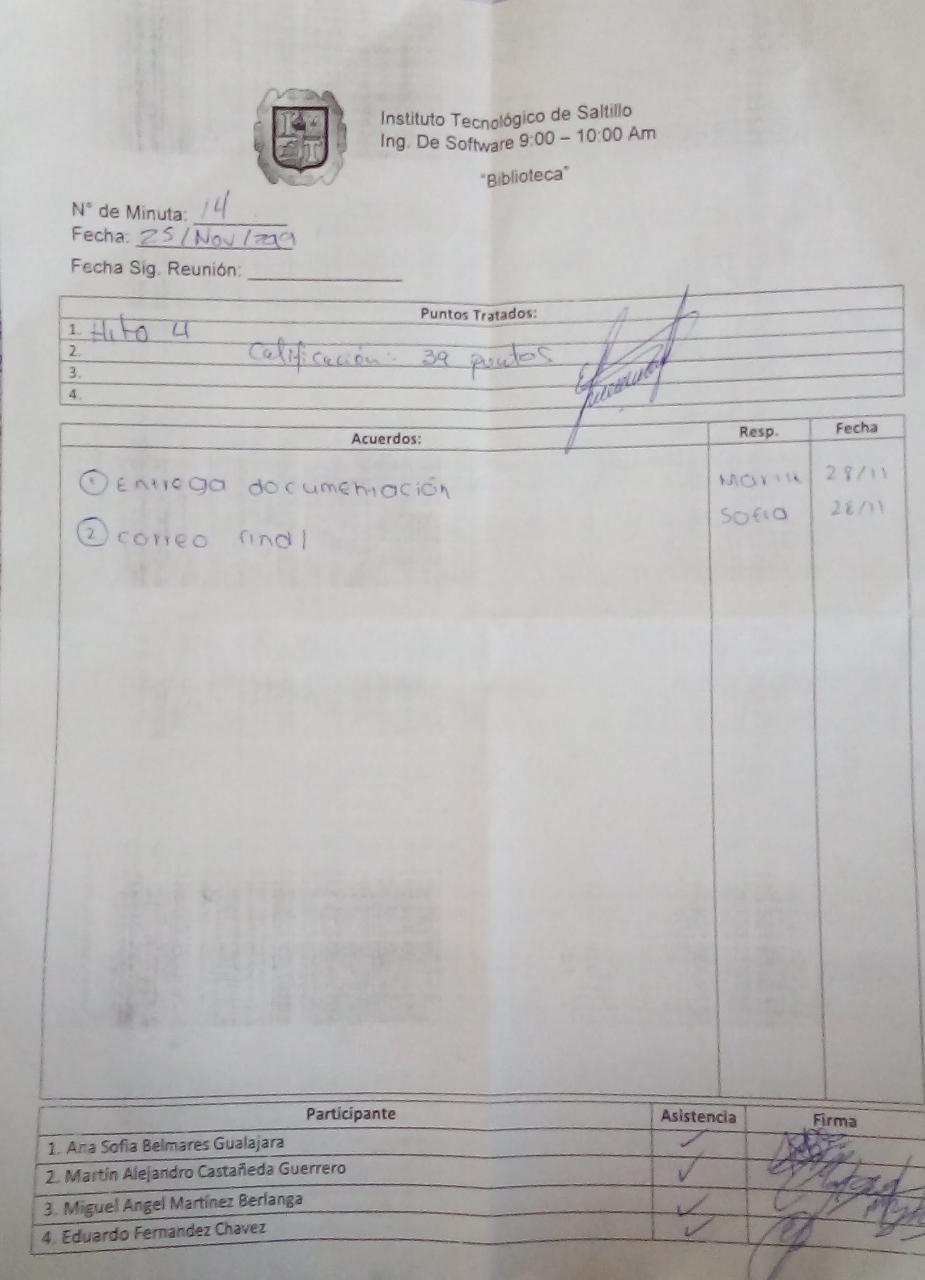 Instituto Tecnológico de Saltillo
Ing. De Software 9:00 – 10:00 Am
"Biblioteca"
N° de Minuta: 14
Fecha: 25/Nov/2019
Fecha Sig. Reunión:
Puntos Tratados:
1. Hito 4
2. Calificación: 39 puntos
3.
4.
Acuerdos: Resp. Fecha
① Entrega documentación Martin 28/11
② correo final Sofia 28/11
Participante Asistencia Firma
1. Ana Sofia Belmares Gualajara ✓
2. Martín Alejandro Castañeda Guerrero ✓
3. Miguel Angel Martínez Berlanga ✓
4. Eduardo Fernandez Chavez ✓